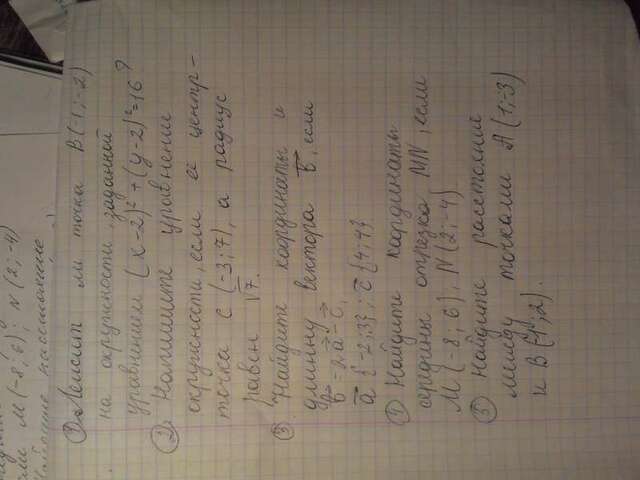 ① Лежит ли точка B(-1;-2)
на окружности, заданной
уравнением (x-2)²+(y-2)²=16?
② Напишите уравнение
окружности, если её центр -
точка C (-3;7), а радиус
равен √7.
③ Найдите координаты и
длинну вектора b, если
b = 2a - c,
a {-2;3}; c {4;4}
④ Найдите координаты
середины отрезка MN, если
M(-8;6), N(2;-4)
⑤ Найдите расстояние
между точками A(1;-3)
и B(-1;2).
M(-8;6); N(2;-4)